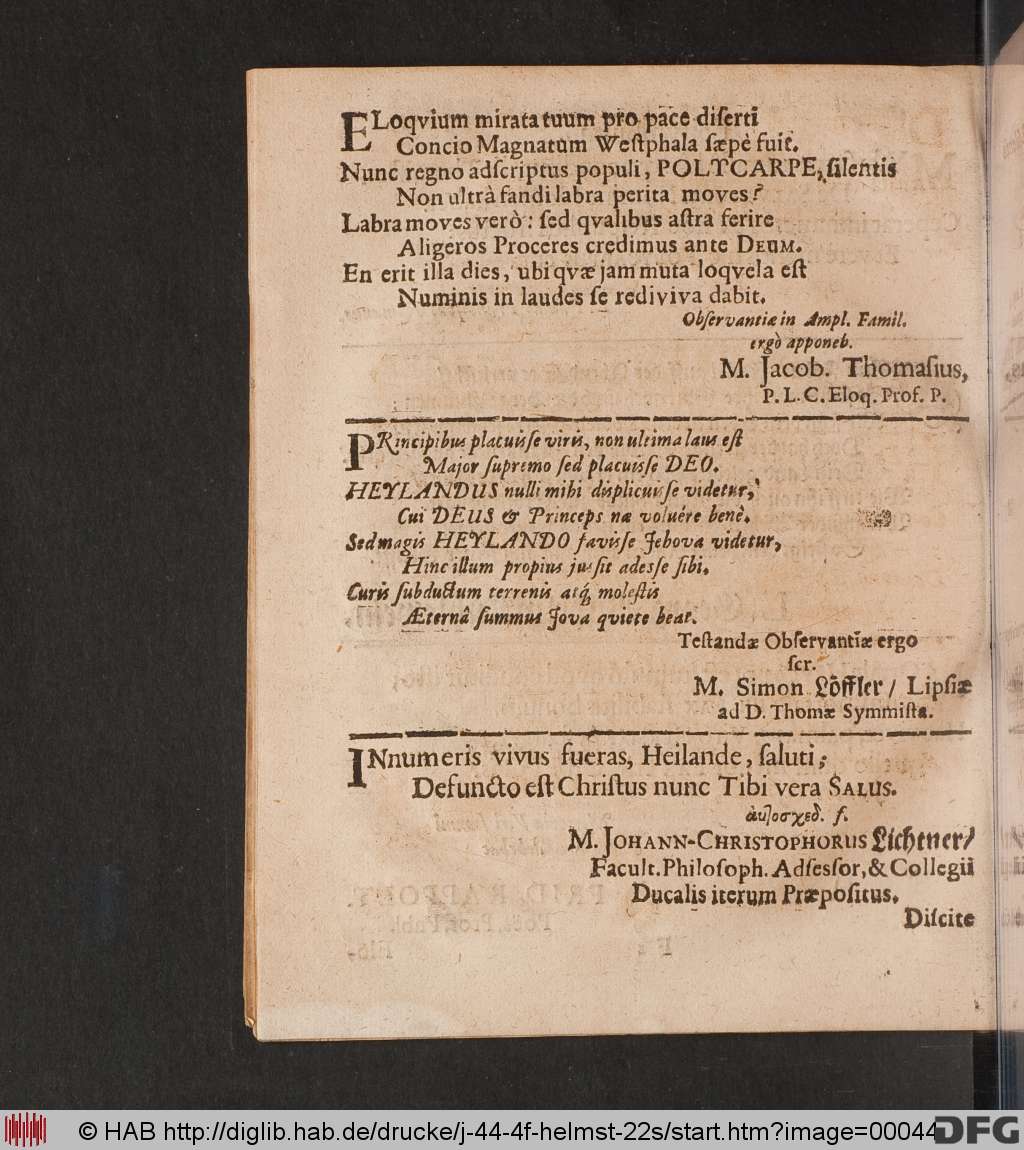 ELoqvium mirata tuum pro pace diserti
Concio Magnatum Westphala sæpè fuit.
Nunc regno adscriptus populi, POLYCARPE, silentis
Non ultrà fandi labra perita moves?
Labra moves verò: sed qvalibus astra ferire
Aligeros Proceres credimus ante DEUM.
En erit illa dies, ubi qvæ jam muta loqvela est
Numinis in laudes se rediviva dabit.
Observantiæ in Ampl. Famil.
ergò apponeb.
M. Jacob. Thomasius,
P. L. C. Eloq. Prof. P.
PRincipibus placuisse viris, non ultima laus est
Major supremo sed placuisse DEO.
HEYLANDUS nulli mihi displicuisse videtur,
Cui DEUS & Princeps næ voluére benè.
Sed magis HEYLANDO favisse Jehova videtur,
Hinc illum propius jussit adesse sibi.
Curis subductum terrenis atq; molestis
Æternâ summus Jova qviete beat.
Testandæ Observantiæ ergo
scr.
M. Simon Löffler / Lipsiæ
ad D. Thomæ Symmista.
INnumeris vivus fueras, Heilande, saluti;
Defuncto est Christus nunc Tibi vera SALUS.
αὐτοσχεδ. f.
M. JOHANN-CHRISTOPHORUS Lichtner/
Facult. Philosoph. Adsessor, & Collegii
Ducalis iterum Præpositus.
Discite
© HAB http://diglib.hab.de/drucke/j-44-4f-helmst-22s/start.htm?image=00044
DFG